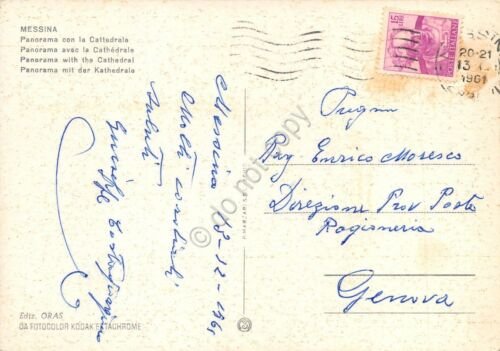 MESSINA
Panorama con la Cattedrale
Panorama avec la Cathédrale
Panorama with the Cathedral
Panorama mit der Kathedrale
Messina 13-12-1961
Molti cordiali
saluti
Giuseppe
Ediz. ORAS
DA FOTOCOLOR KODAK EKTACHROME
do not copy
POSTE ITALIANE
20-21
13
1961
Pregmo
Rag Enrico Moresco
Direzione Prov Poste
Ragioneria
Genova